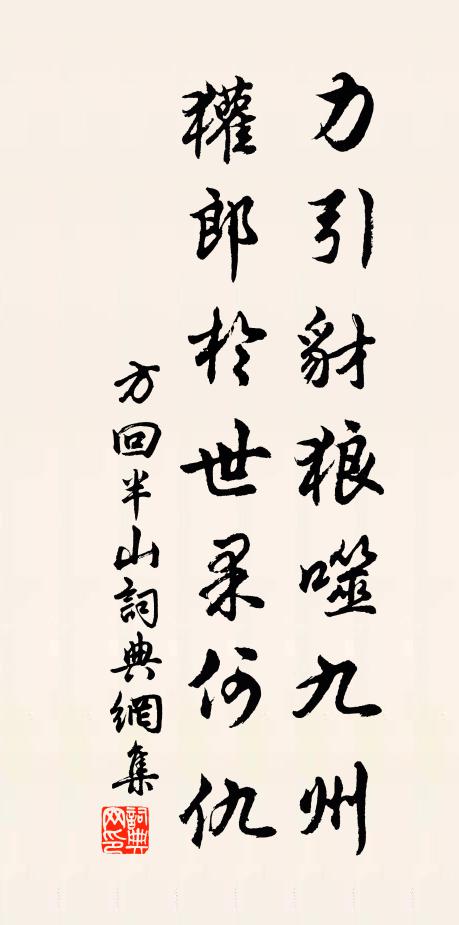 力引豺狼噬九州
獾郎於世果何仇
方回半山詞典網集
詞典網印